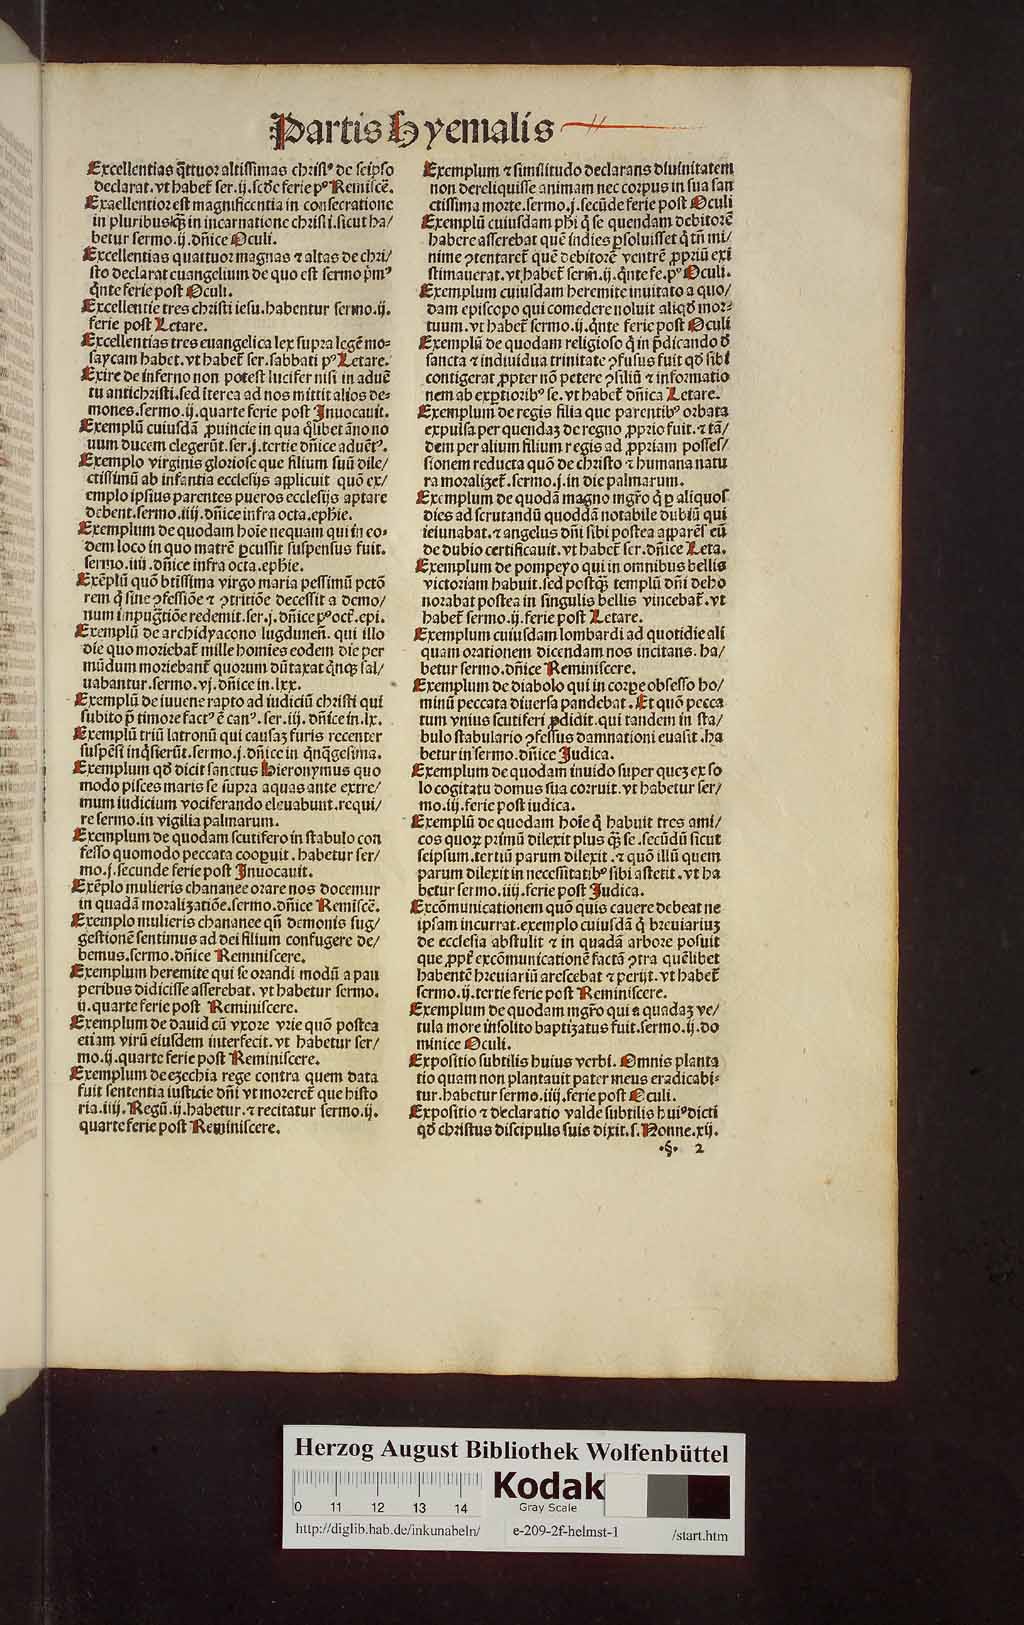 Partis Hyemalis
Excellentias q̄ttuor altissimas christiꝰ de seipso
declarat. vt habet̄ ser. ij. scd̄e ferie pꝰ Reminiscē.
Exaellentior est magnificentia in consecratione
in pluribus qꝫ in incarnatione christi. sicut ha/
betur sermo. ij. dn̄ice Oculi.
Excellentias quattuor magnas ⁊ altas de chri/
sto declarat euangelium de quo est sermo p̄mꝰ
q̄nte ferie post Oculi.
Excellentie tres christi iesu. habentur sermo. ij.
ferie post Letare.
Excellentias tres euangelica lex supra legē mo-
saycam habet. vt habet̄ ser. sabbati pꝰ Letare.
Exire de inferno non potest lucifer nisi in aduē
tu antichristi. sed iterea ad nos mittit alios de-
mones. sermo. ij. quarte ferie post Inuocauit.
Exemplū cuiusdā ꝓuincie in qua q̄libet āno no
uum ducem elegerūt. ser. j. tertie dn̄ice aduētꝰ.
Exemplo virginis gloriose que filium suū dile/
ctissimū ab infantia ecclesijs applicuit quō ex/
emplo ipsius parentes pueros ecclesijs aptare
debent. sermo. iiij. dn̄ice infra octa. ephie.
Exemplum de quodam hoīe nequam qui in eo-
dem loco in quo matrē ꝑcussit suspensus fuit.
sermo. iiij. dn̄ice infra octa. ephie.
Exēplū quō btīssima virgo maria pessimū pctō
rem q̄ sine ꝯfessiōe ⁊ ꝯtritiōe decessit a demo/
num inpugtiōe redemit. ser. j. dn̄ice pꝰ oct̄. epi.
Exemplū de archidyacono lugdunen̄. qui illo
die quo moriebat̄ mille homies eodem die per
mūdum moriebant̄ quorum dūtaxat q̄nqꝫ sal/
uabantur. sermo. vj. dn̄ice in. lxx.
Exemplū de iuuene rapto ad iudiciū christi qui
subito p̄ timore factꝰ ē canꝰ. ser. iij. dn̄ice in. lx.
Exemplū triū latronū qui causaꝫ furis recenter
suspēsi inq̄sierūt. sermo. j. dn̄ice in q̄nq̄gesima.
Exemplum qd̄ dicit sanctus Hieronymus quo
modo pisces maris se supra aquas ante extre/
mum iudicium vociferando eleuabunt. requi/
re sermo. in vigilia palmarum.
Exemplum de quodam scutifero in stabulo con
fesso quomodo peccata cooꝑuit. habetur ser/
mo. j. secunde ferie post Inuocauit.
Exēplo mulieris chananee orare nos docemur
in quadā moralizatiōe. sermo. dn̄ice Remiscē.
Exemplo mulieris chananee qn̄ demonis sug/
gestionē sentimus ad dei filium confugere de/
bemus. sermo. dn̄ice Reminiscere.
Exemplum heremite qui se orandi modū a pau
peribus didicisse asserebat. vt habetur sermo.
ij. quarte ferie post Reminiscere.
Exemplum de dauid cū vxore vrie quō postea
etiam virū eiusdem interfecit. vt habetur ser/
mo. ij. quarte ferie post Reminiscere.
Exemplum de ezechia rege contra quem data
fuit sententia iusticie dn̄i vt moreret̄ que histo
ria. iiij. Regū. ij. habetur. ⁊ recitatur sermo. ij.
quarte ferie post Reminiscere.
Exemplum ⁊ similitudo declarans diuinitatem
non dereliquisse animam nec corpus in sua san
ctissima morte. sermo. j. secūde ferie post Oculi
Exemplū cuiusdam phi q̄ se quendam debitorē
habere asserebat quē indies ꝑsoluisset q̄ tn̄ mi/
nime ꝯtentaret̄ quē debitorē ventrē ꝓpriū exi
stimauerat. vt habet̄ serm̄. ij. q̄nte fe. pꝰ Oculi.
Exemplum cuiusdam heremite inuitato a quo/
dam episcopo qui comedere noluit aliqd̄ mor-
tuum. vt habet̄ sermo. ij. q̄nte ferie post Oculi
Exemplū de quodam religioso q̄ in p̄dicando d̄
sancta ⁊ indiuidua trinitate ꝯfusus fuit qd̄ sibi
contigerat ꝓpter nō petere ꝯsiliū ⁊ informatio
nem ab exꝑtioribꝰ se. vt habet̄ dn̄ica Letare.
Exemplum de regis filia que parentibꝰ orbata
expulsa per quendaꝫ de regno ꝓprio fuit. ⁊ tā/
dem per alium filium regis ad ꝓpriam posses/
sionem reducta quō de christo ⁊ humana natu
ra moralizet̄. sermo. j. in die palmarum.
Exemplum de quodā magno mgr̄o q̄ ꝑ aliquos
dies ad scrutandū quoddā notabile dubiū qui
ieiunabat. ⁊ angelus dn̄i sibi postea apparēs eū
de dubio certificauit. vt habet̄ ser. dn̄ice Leta.
Exemplum de pompeyo qui in omnibus bellis
victoriam habuit. sed postqꝫ templū dn̄i deho
norabat postea in singulis bellis vincebat̄. vt
habet̄ sermo. ij. ferie post Letare.
Exemplum cuiusdam lombardi ad quotidie ali
quam orationem dicendam nos incitans. ha/
betur sermo. dn̄ice Reminiscere.
Exemplum de diabolo qui in corꝑe obsesso ho/
minū peccata diuersa pandebat. Et quō pecca
tum vnius scutiferi ꝓdidit. qui tandem in sta/
bulo stabulario ꝯfessus damnationi euasit. ha
betur in sermo. dn̄ice Judica.
Exemplum de quodam inuido super queꝫ ex so
lo cogitatu domus sua corruit. vt habetur ser/
mo. iij. ferie post iudica.
Exemplū de quodam hoīe q̄ habuit tres ami/
cos quoꝝ primū dilexit plus qꝫ se. secūdū sicut
seipsum. tertiū parum dilexit. ⁊ quō illū quem
parum dilexit in necessitatibꝰ sibi astetit. vt ha
betur sermo. iiij. ferie post Judica.
Excōmunicationem quō quis cauere debeat ne
ipsam incurrat. exemplo cuiusdā q̄ breuiariuꝫ
de ecclesia abstulit ⁊ in quadā arbore posuit
que ꝓpt̄ excōmunicationē factā ꝯtra quēlibet
habentē breuiariū arescebat ⁊ perijt. vt habet̄
sermo. ij. tertie ferie post Reminiscere.
Exemplum de quodam mgr̄o qui a quadaꝫ ve/
tula more insolito baptizatus fuit. sermo. ij. do
minice Oculi.
Expositio subtilis huius verbi. Omnis planta
tio quam non plantauit pater meus eradicabi-
tur. habetur sermo. iiij. ferie post Oculi.
Expositio ⁊ declaratio valde subtilis huiꝰ dicti
qd̄ christus discipulis suis dixit. s. Nonne. xij.
·§· 2
Herzog August Bibliothek Wolfenbüttel
Kodak
Gray Scale
0 11 12 13 14
http://diglib.hab.de/inkunabeln/ e-209-2f-helmst-1 /start.htm